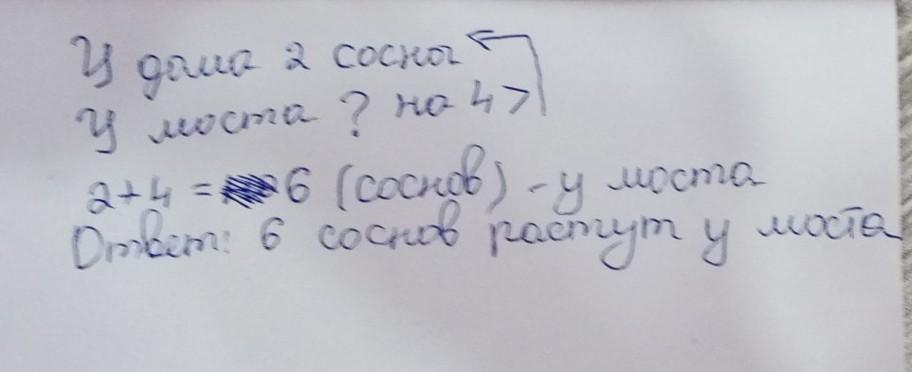 У дома 2 сосны
У моста ? на 4 >
2+4 = 6 (соснов) - у моста
Ответ: 6 соснов растут у моста